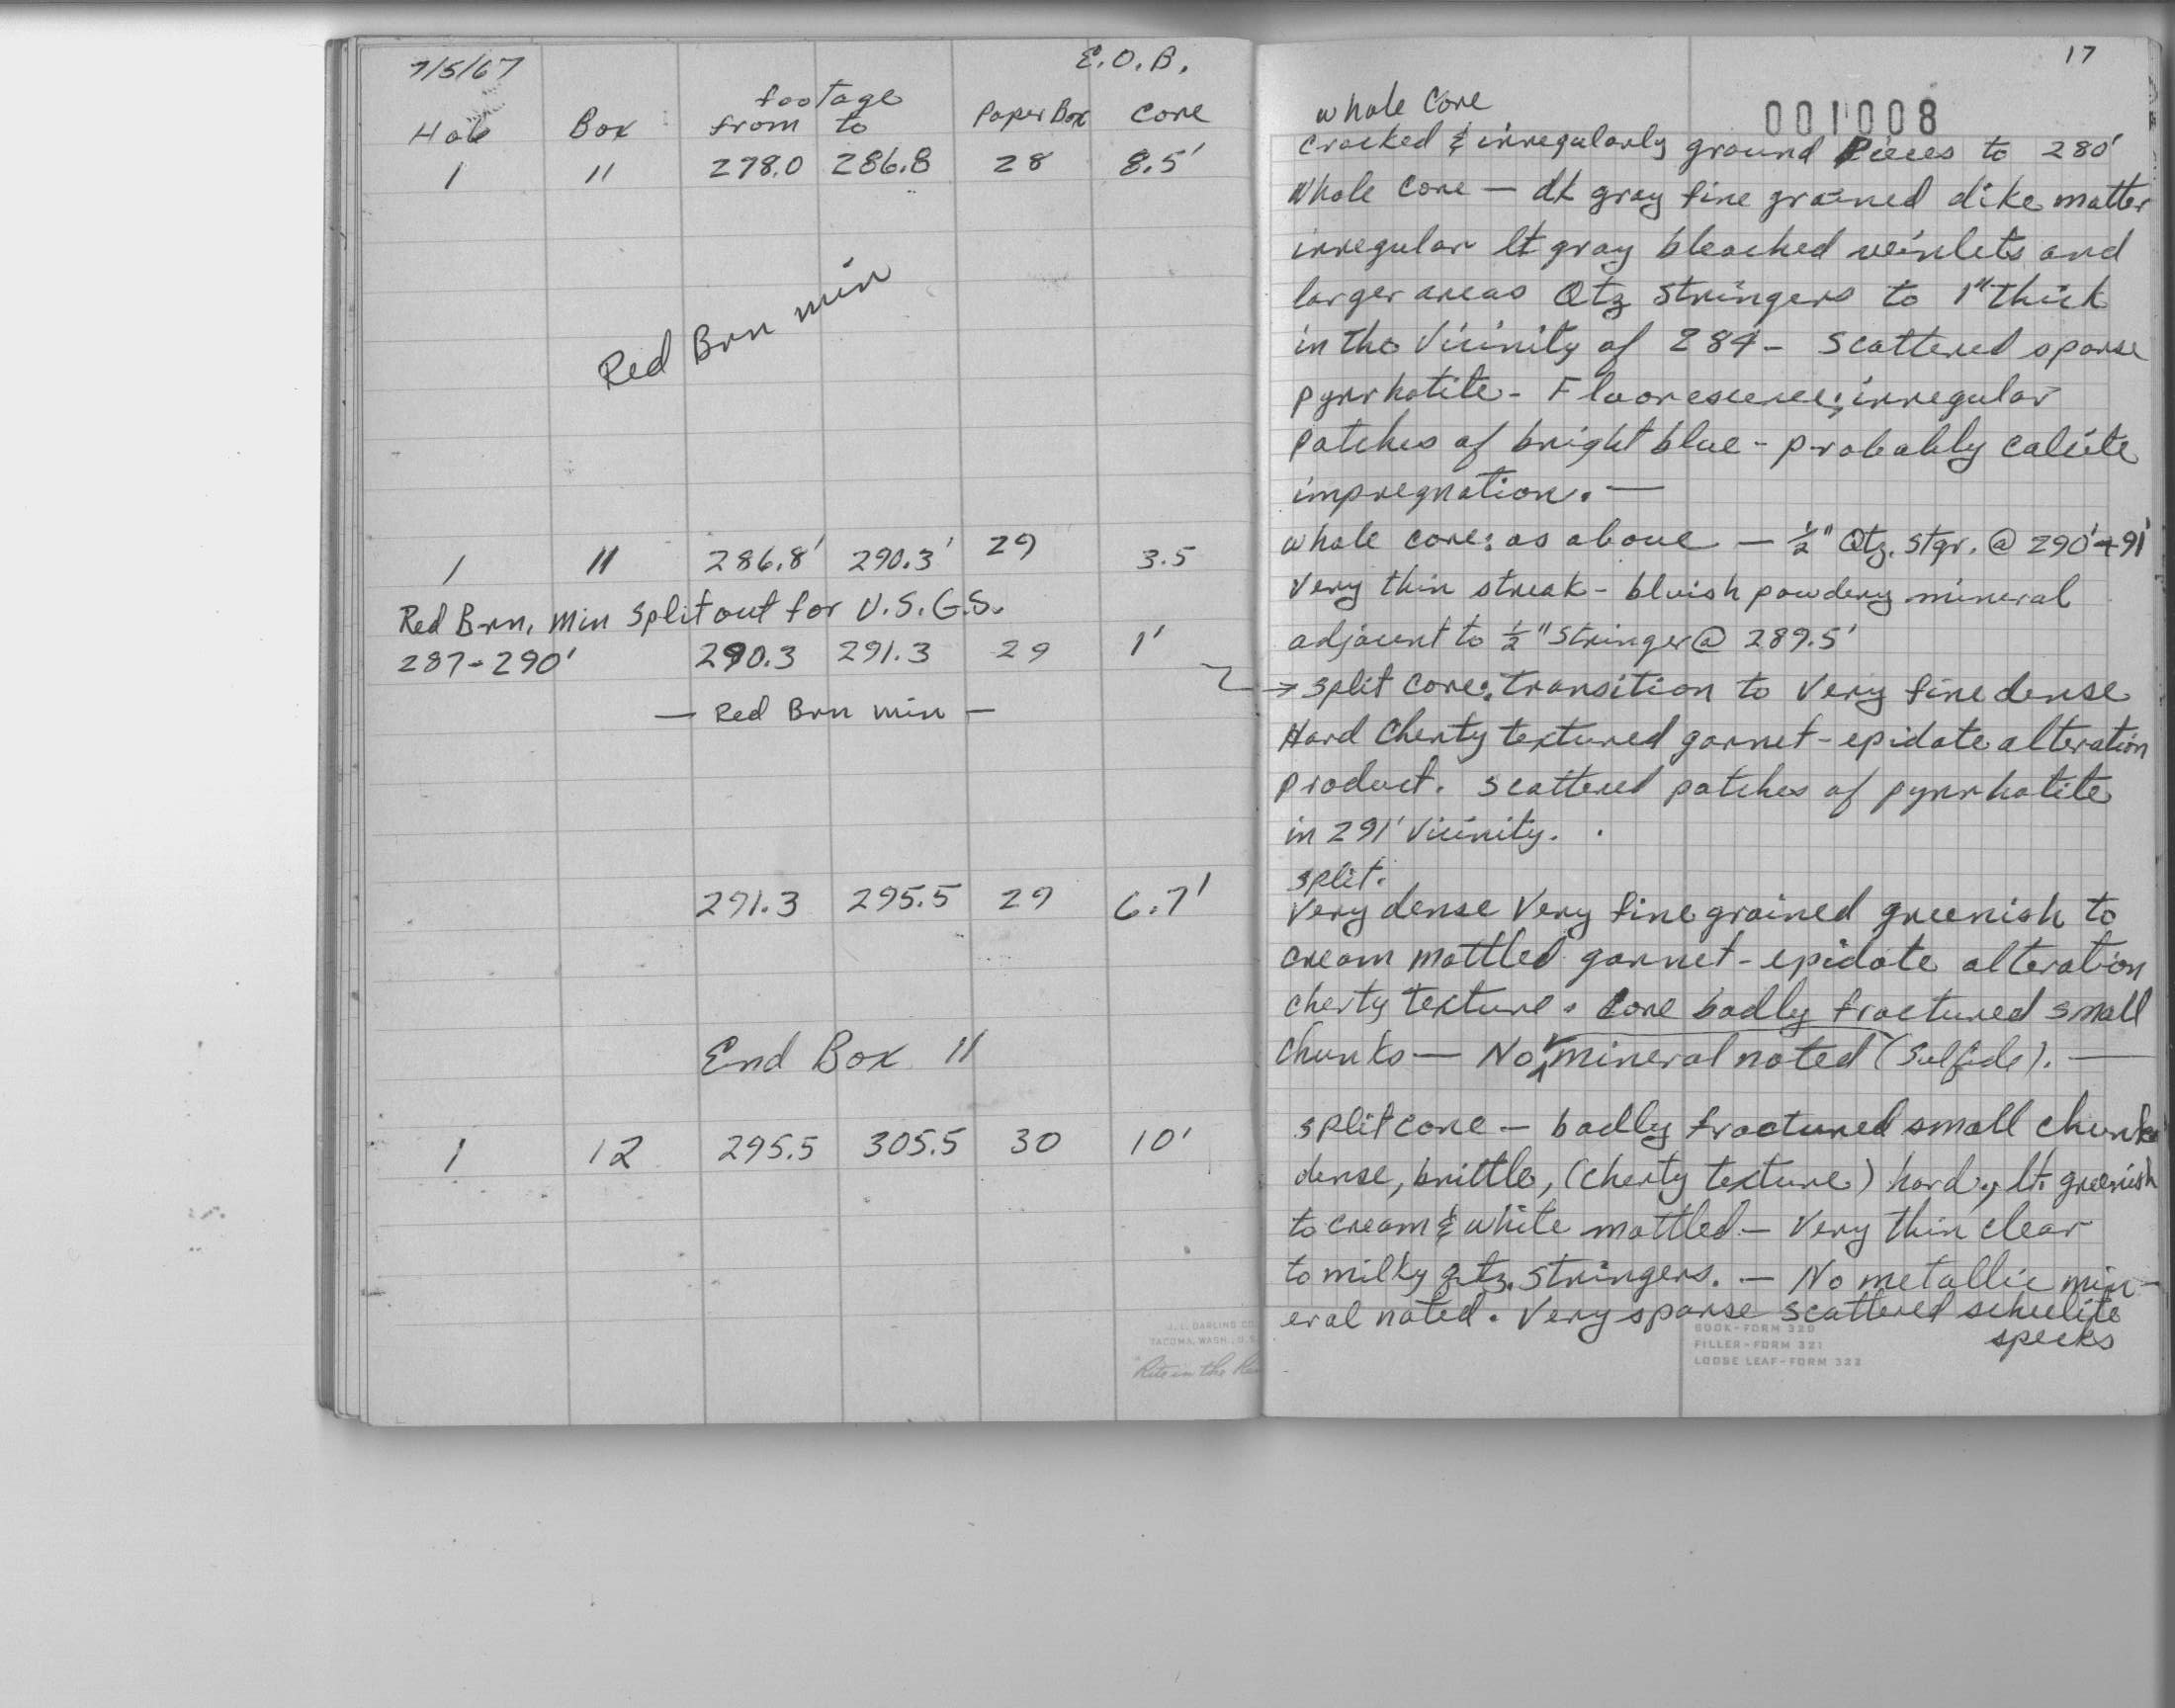 7/5/67
E.O.B.
footage
Hole Box from to Paper Box Core
1 11 278.0 286.8 28 8.5'
Red Brn min
1 11 286.8' 290.3' 29 3.5
Red Brn. Min Split out for U.S.G.S.
287-290' 290.3 291.3 29 1'
— Red Brn min —
291.3 295.5 29 6.7'
End Box 11
1 12 295.5 305.5 30 10'
J. L. DARLING CO
TACOMA, WASH., U.S.
Rite in the
17
001008
whole core
cracked & irregularly ground pieces to 280'
whole core — dk gray fine grained dike matter
irregular lt gray bleached veinlets and
larger areas Qtz stringers to 1" thick
in the vicinity of 284 - scattered sparse
pyrrhotite - Fluorescence; irregular
patches of bright blue - probably calcite
impregnation. —
whole core: as above — ½" Qtz. stgr. @ 290'+91'
very thin streak - bluish powdery mineral
adjacent to ½" stringer @ 289.5'
→ split core: transition to very fine dense
Hard Cherty textured garnet-epidote alteration
product. scattered patches of pyrrhotite
in 291' vicinity.
split.
Very dense Very fine grained greenish to
cream mottled garnet-epidote alteration
cherty texture. Core badly fractured small
chunks — No mineral noted (sulfide). —
split core — badly fractured small chunks
dense, brittle, (cherty texture) hard, lt. greenish
to cream & white mottled — Very thin clear
to milky qtz. stringers. — No metallic min-
eral noted. Very sparse scattered scheelite
specks
BOOK-FORM 320
FILLER-FORM 321
LOOSE LEAF-FORM 322